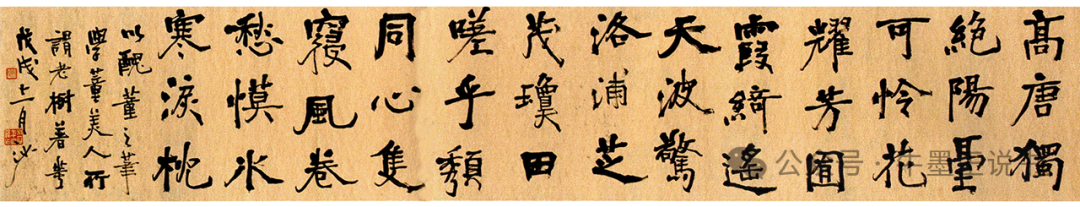 高唐獨
絕陽臺
可怜花
耀芳圃
霞綺遙
天波驚
洛浦芝
茂瓊田
嗟乎頹
同心隻
寢風卷
愁幙氷
寒淚枕
以醜董之筆
學董美人行
謂老樹著花
戊戌十一月沙
公众号